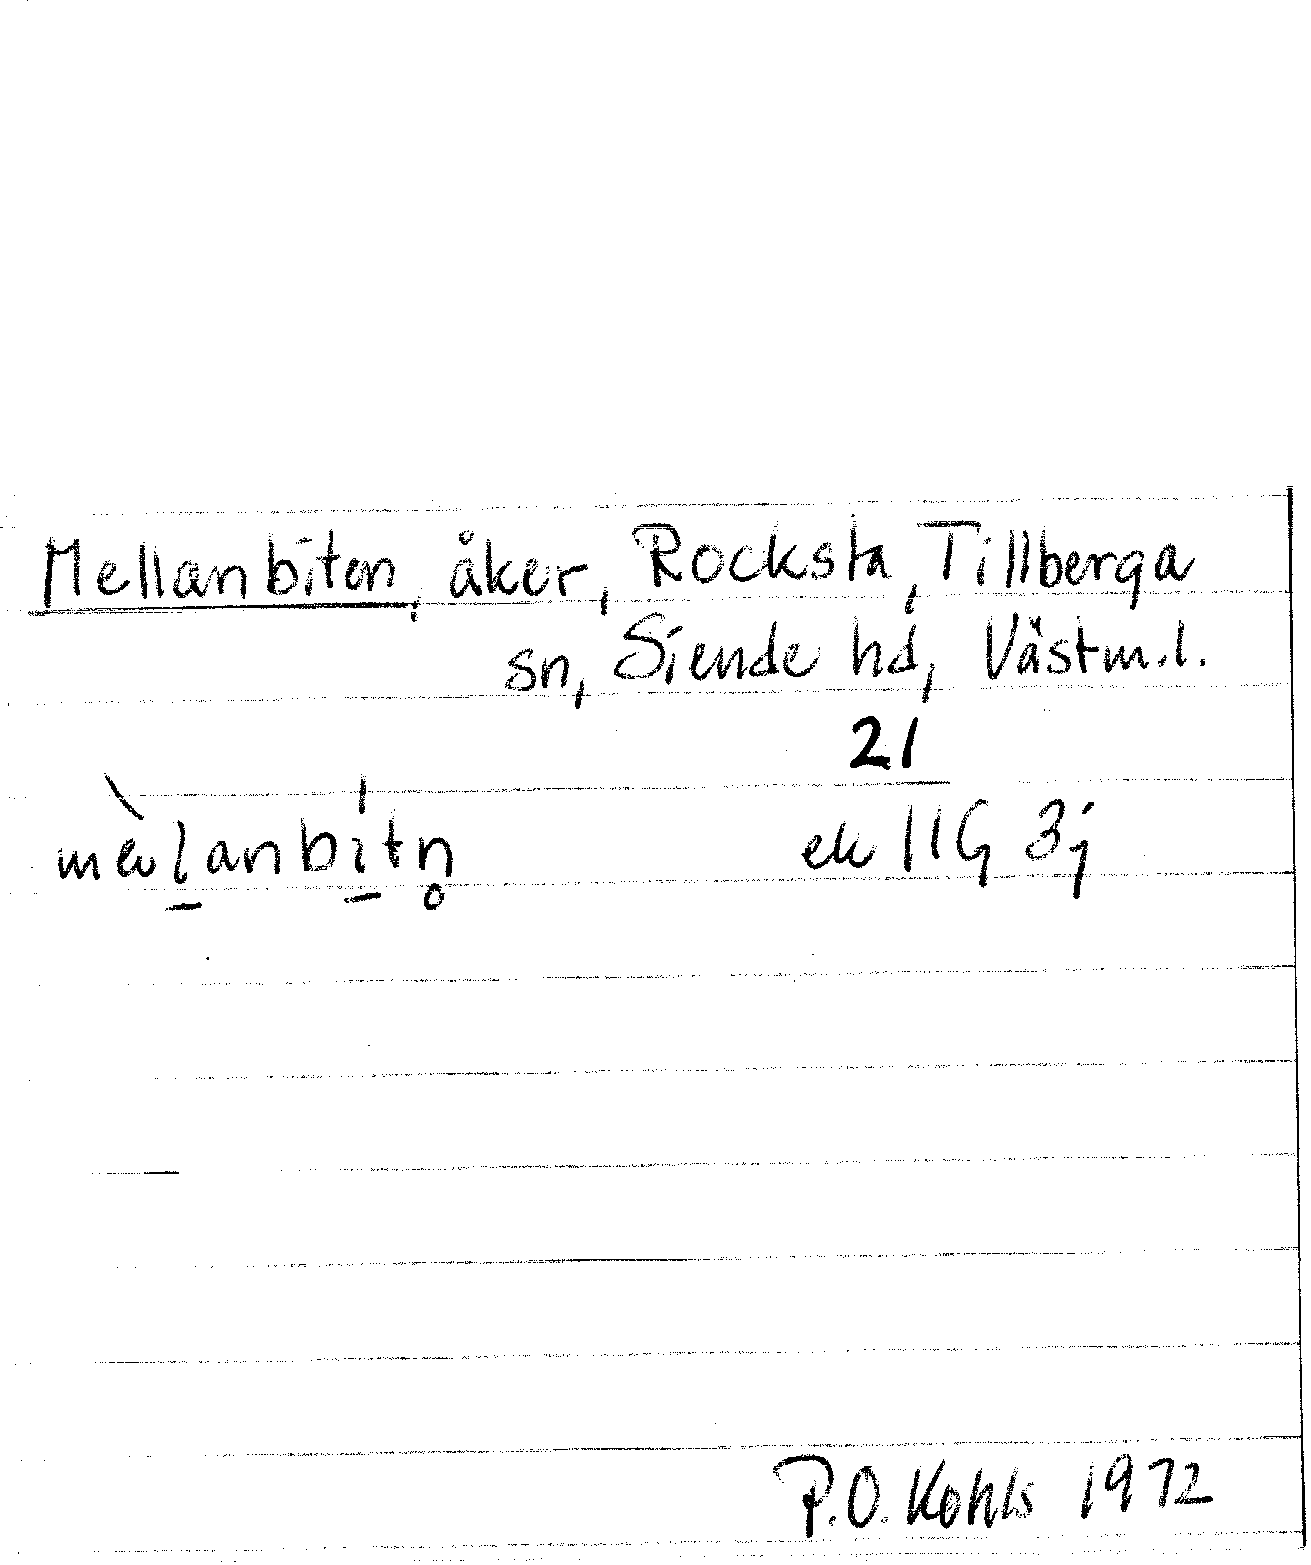 Mellanbiten, åker, Rocksta, Tillberga
sn, Siende hd, Västm.l.
21
mèlanbítn̥
ek 11G 3j
P.O. Kohls 1972